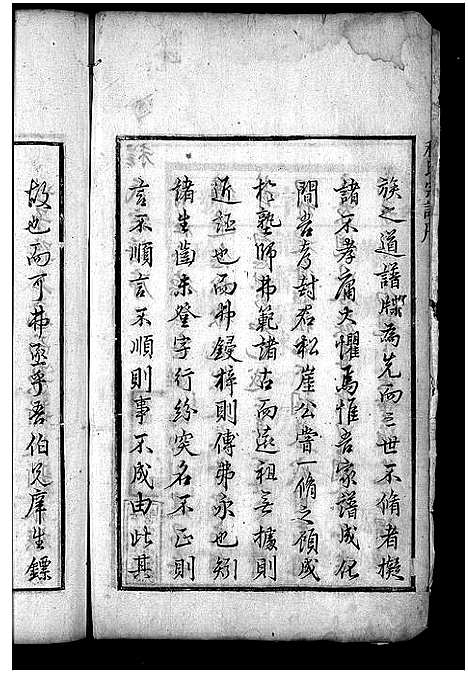 族之道譜牒為先而三世不脩者擬
諸不孝庸大懼焉惟吾家譜成化
間吾考封君松崖公嘗一脩之顧成
於塾師弗範諸古而遠祖無據則
近誣也而弗鋟梓則傳弗永也矧
諸生齒未登字行紛突名不正則
言不順言不順則事不成由此其
故也而可弗亟乎吾伯兄庠生鏢